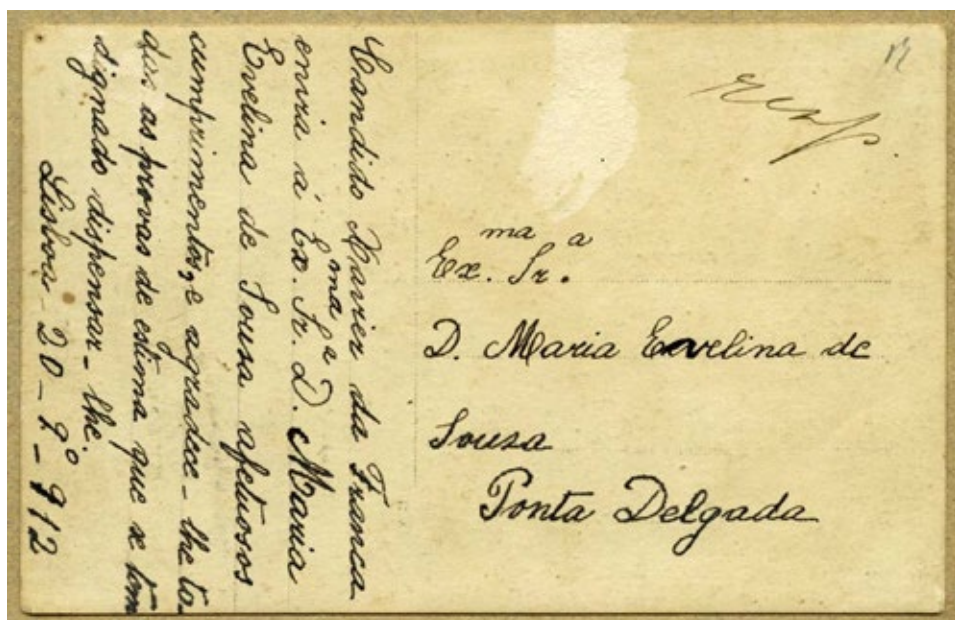 Candido Xavier da Franca
envia á Ex.ma Sr.a D. Maria
Evelina de Sousa afetuosos
cumprimentos, e agradece-lhe to-
das as provas de estima que se tem
dignado dispensar-lhe.
Lisboa-20-9º-912
Ex.ma Sr.a
D. Maria Evelina de
Sousa
Ponta Delgada